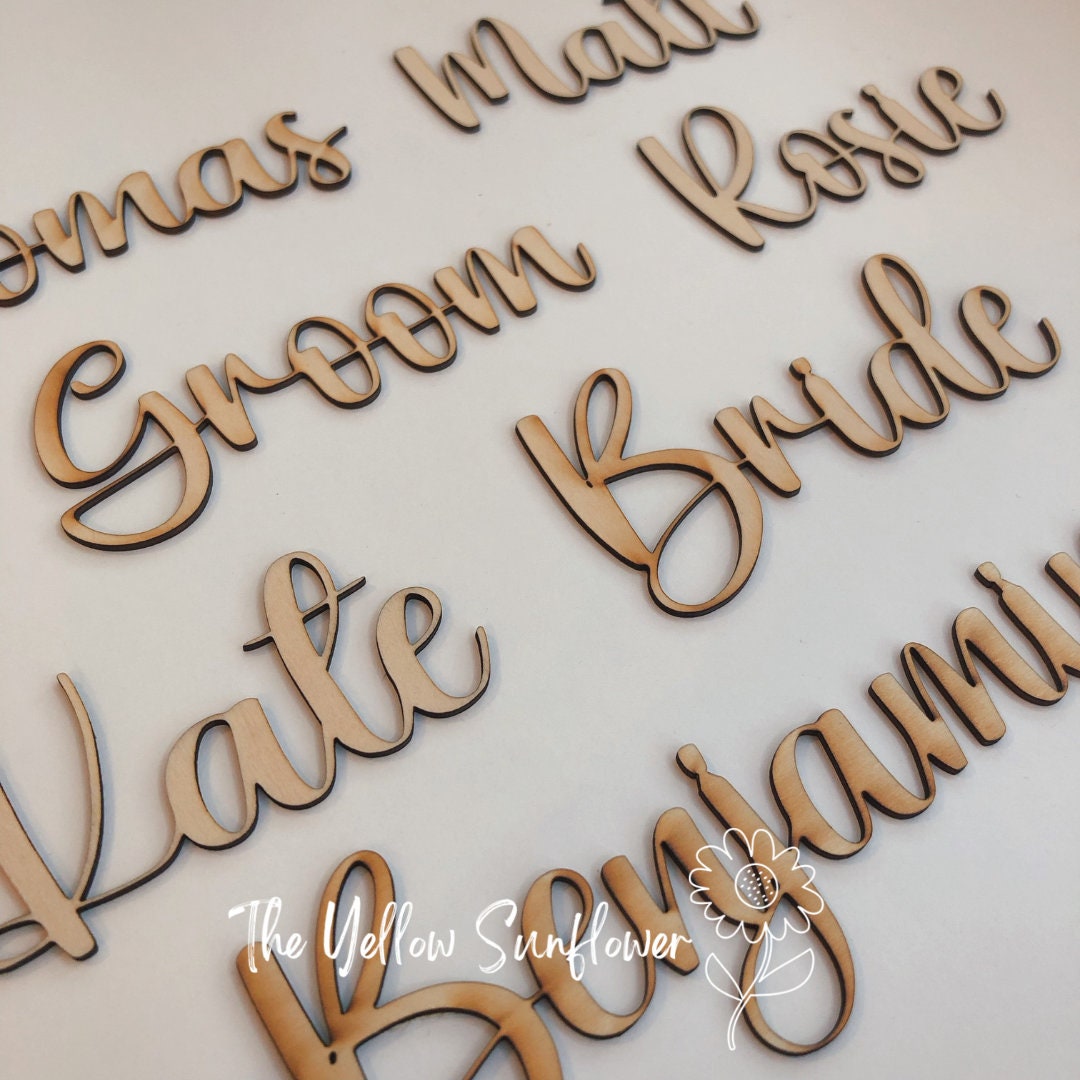 Matt
omas
Rosie
Groom
Bride
Kate
Benjamin
The Yellow Sunflower